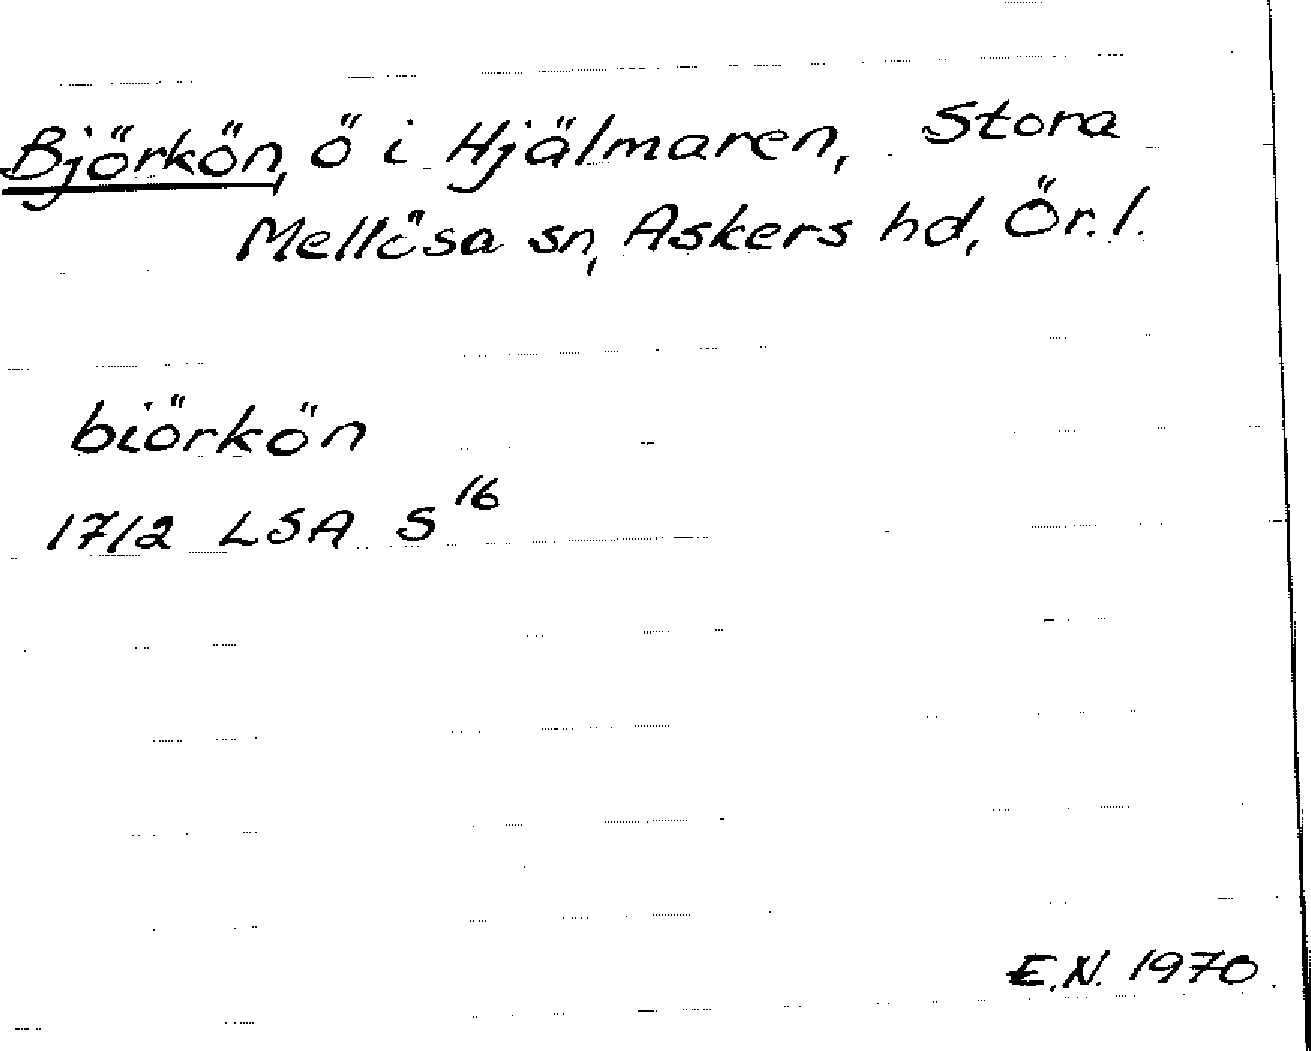 Björkön, ö i Hjälmaren, Stora
Mellösa sn, Askers hd, Ör. l.
biörkön
1712 LSA S 16
E.N. 1970